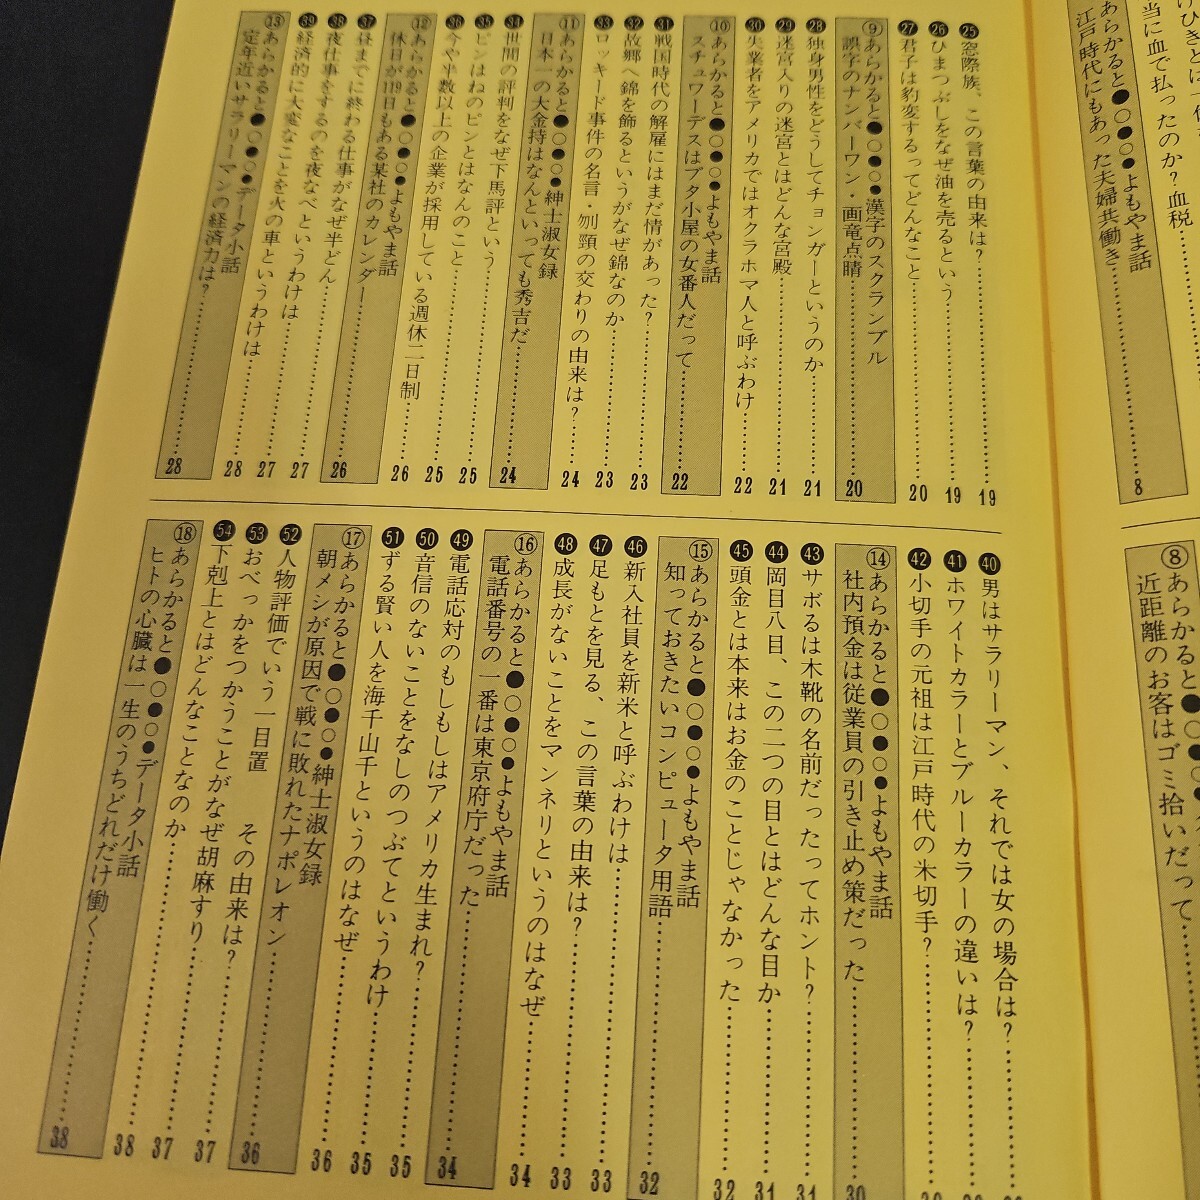 当に血で払ったのか？血税
あらかると●○●○●よもやま話
江戸時代にもあった夫婦共働き
8
⑧あらかると●○●
近距離のお客はゴミ拾いだって
㉕窓際族、この言葉の由来は？ 19
㉖ひまつぶしをなぜ油を売るという 19
㉗君子は豹変するってどんなこと 20
⑨あらかると●○●○●漢字のスクランブル
誤字のナンバーワン・画竜点睛 20
㉘独身男性をどうしてチョンガーというのか 21
㉙迷宮入りの迷宮とはどんな宮殿 21
㉚失業者をアメリカではオクラホマ人と呼ぶわけ 22
⑩あらかると●○●○●よもやま話
スチュワーデスはブタ小屋の女番人だって 22
㉛戦国時代の解雇にはまだ情があった？ 23
㉜故郷へ錦を飾るというがなぜ錦なのか 23
㉝ロッキード事件の名言・刎頸の交わりの由来は？ 24
⑪あらかると●○●○●紳士淑女録
日本一の大金持はなんといっても秀吉だ 24
㉞世間の評判をなぜ下馬評という 25
㉟ピンはねのピンとはなんのこと 25
㊱今や半数以上の企業が採用している週休二日制 26
⑫あらかると●○●○●よもやま話
休日が119日もある某社のカレンダー 26
㊲昼までに終わる仕事がなぜ半どん 27
㊳夜仕事をするのを夜なべというわけは 27
㊴経済的に大変なことを火の車というわけは 28
⑬あらかると●○●○●データ小話
定年近いサラリーマンの経済力は？ 28
㊵男はサラリーマン、それでは女の場合は？
㊶ホワイトカラーとブルーカラーの違いは？
㊷小切手の元祖は江戸時代の米切手？
⑭あらかると●○●○●よもやま話
社内預金は従業員の引き止め策だった 30
㊸サボるは木靴の名前だったってホント？ 31
㊹岡目八目、この二つの目とはどんな目か 31
㊺頭金とは本来はお金のことじゃなかった 32
⑮あらかると●○●○●よもやま話
知っておきたいコンピュータ用語 32
㊻新入社員を新米と呼ぶわけは 33
㊼足もとを見る、この言葉の由来は？ 33
㊽成長がないことをマンネリというのはなぜ 34
⑯あらかると●○●○●よもやま話
電話番号の一番は東京府庁だった 34
㊾電話応対のもしもしはアメリカ生まれ？ 35
㊿音信のないことをなしのつぶてというわけ 35
51ずる賢い人を海千山千というのはなぜ 36
⑰あらかると●○●○●紳士淑女録
朝メシが原因で戦に敗れたナポレオン 36
52人物評価でいう一目置　その由来は？ 37
53おべっかをつかうことがなぜ胡麻すり 37
54下剋上とはどんなことなのか 38
⑱あらかると●○●○●データ小話
ヒトの心臓は一生のうちどれだけ働く 38